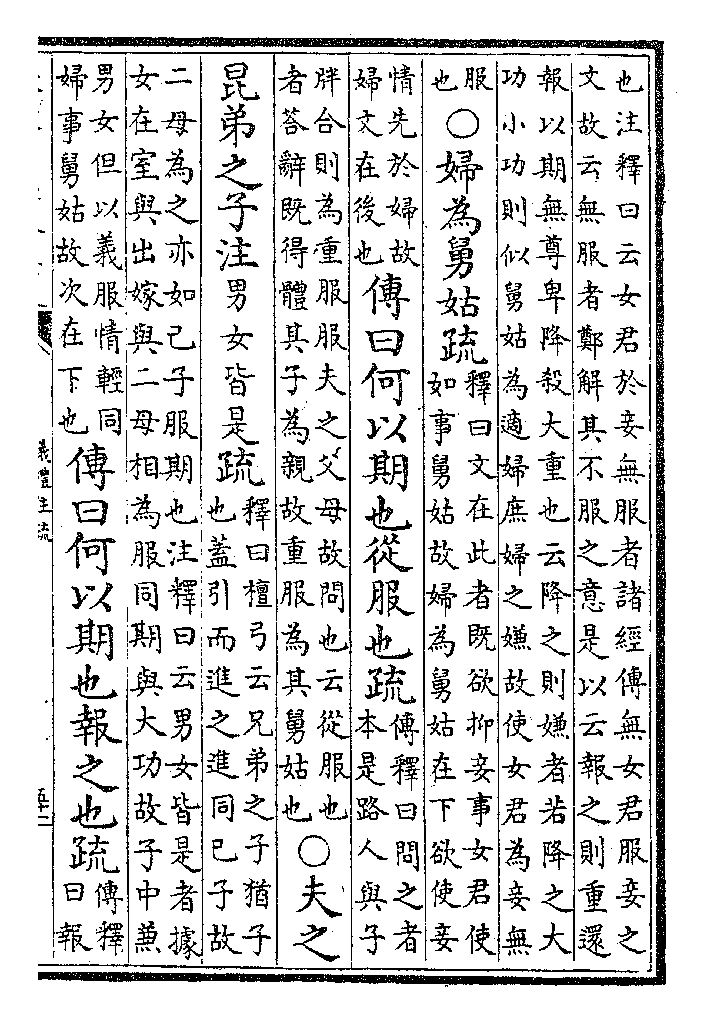 也注釋曰云女君於妾無服者諸經傳無女君服妾之
文故云無服者鄭解其不服之意是以云報之則重還
報以期無尊卑降殺大重也云降之則嫌者若降之大
功小功則似舅姑為適婦庶婦之嫌故使女君為妾無
服
也○婦為舅姑疏釋曰文在此者既欲抑妾事女君使
如事舅姑故婦為舅姑在下欲使妾
情先於婦故
婦文在後也傳曰何以期也從服也疏傳釋曰問之者
本是路人與子
胖合則為重服服夫之父母故問也云從服也
者荅辭既得體其子為親故重服為其舅姑也○夫之
昆弟之子注男女皆是疏釋曰檀弓云兄弟之子猶子
也蓋引而進之進同己子故
二母為之亦如己子服期也注釋曰云男女皆是者據
女在室與出嫁與二母相為服同期與大功故子中兼
男女但以義服情輕同
婦事舅姑故次在下也傳曰何以期也報之也疏傳釋
曰報
儀禮注疏